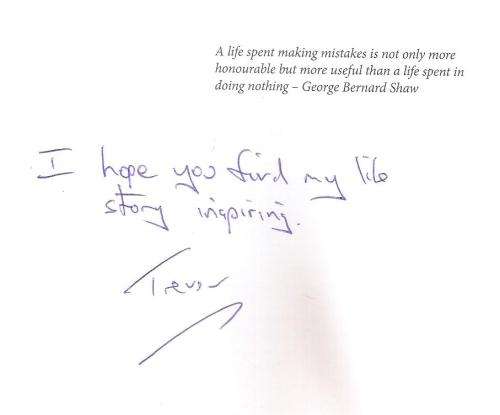 A life spent making mistakes is not only more
honourable but more useful than a life spent in
doing nothing – George Bernard Shaw
I hope you find my life
story inspiring.
Trevor